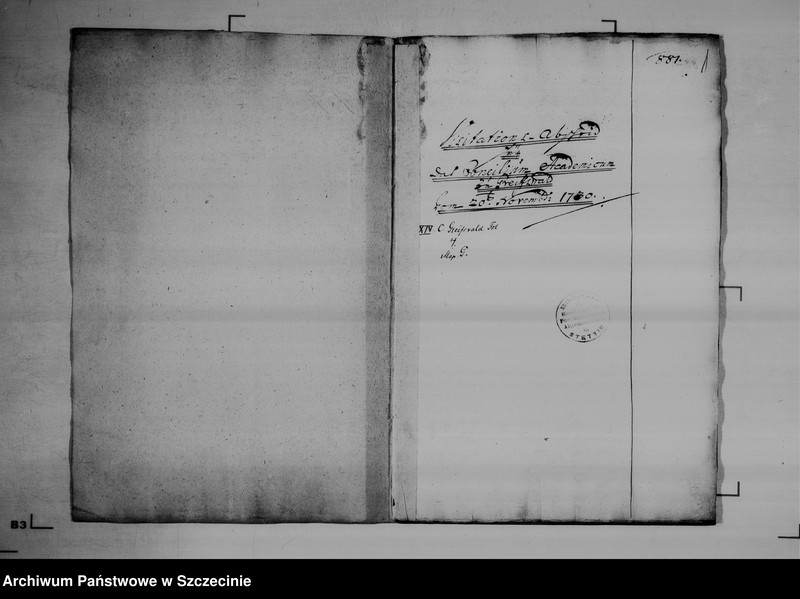 881.
Visitations-Abschid
für
das Concilium Academicum
zu Greifswald
vom 20ten Novemb. 1730.
XIV C. Greifswald Tit
4
G.
STETTIN
B3
Archiwum Państwowe w Szczecinie